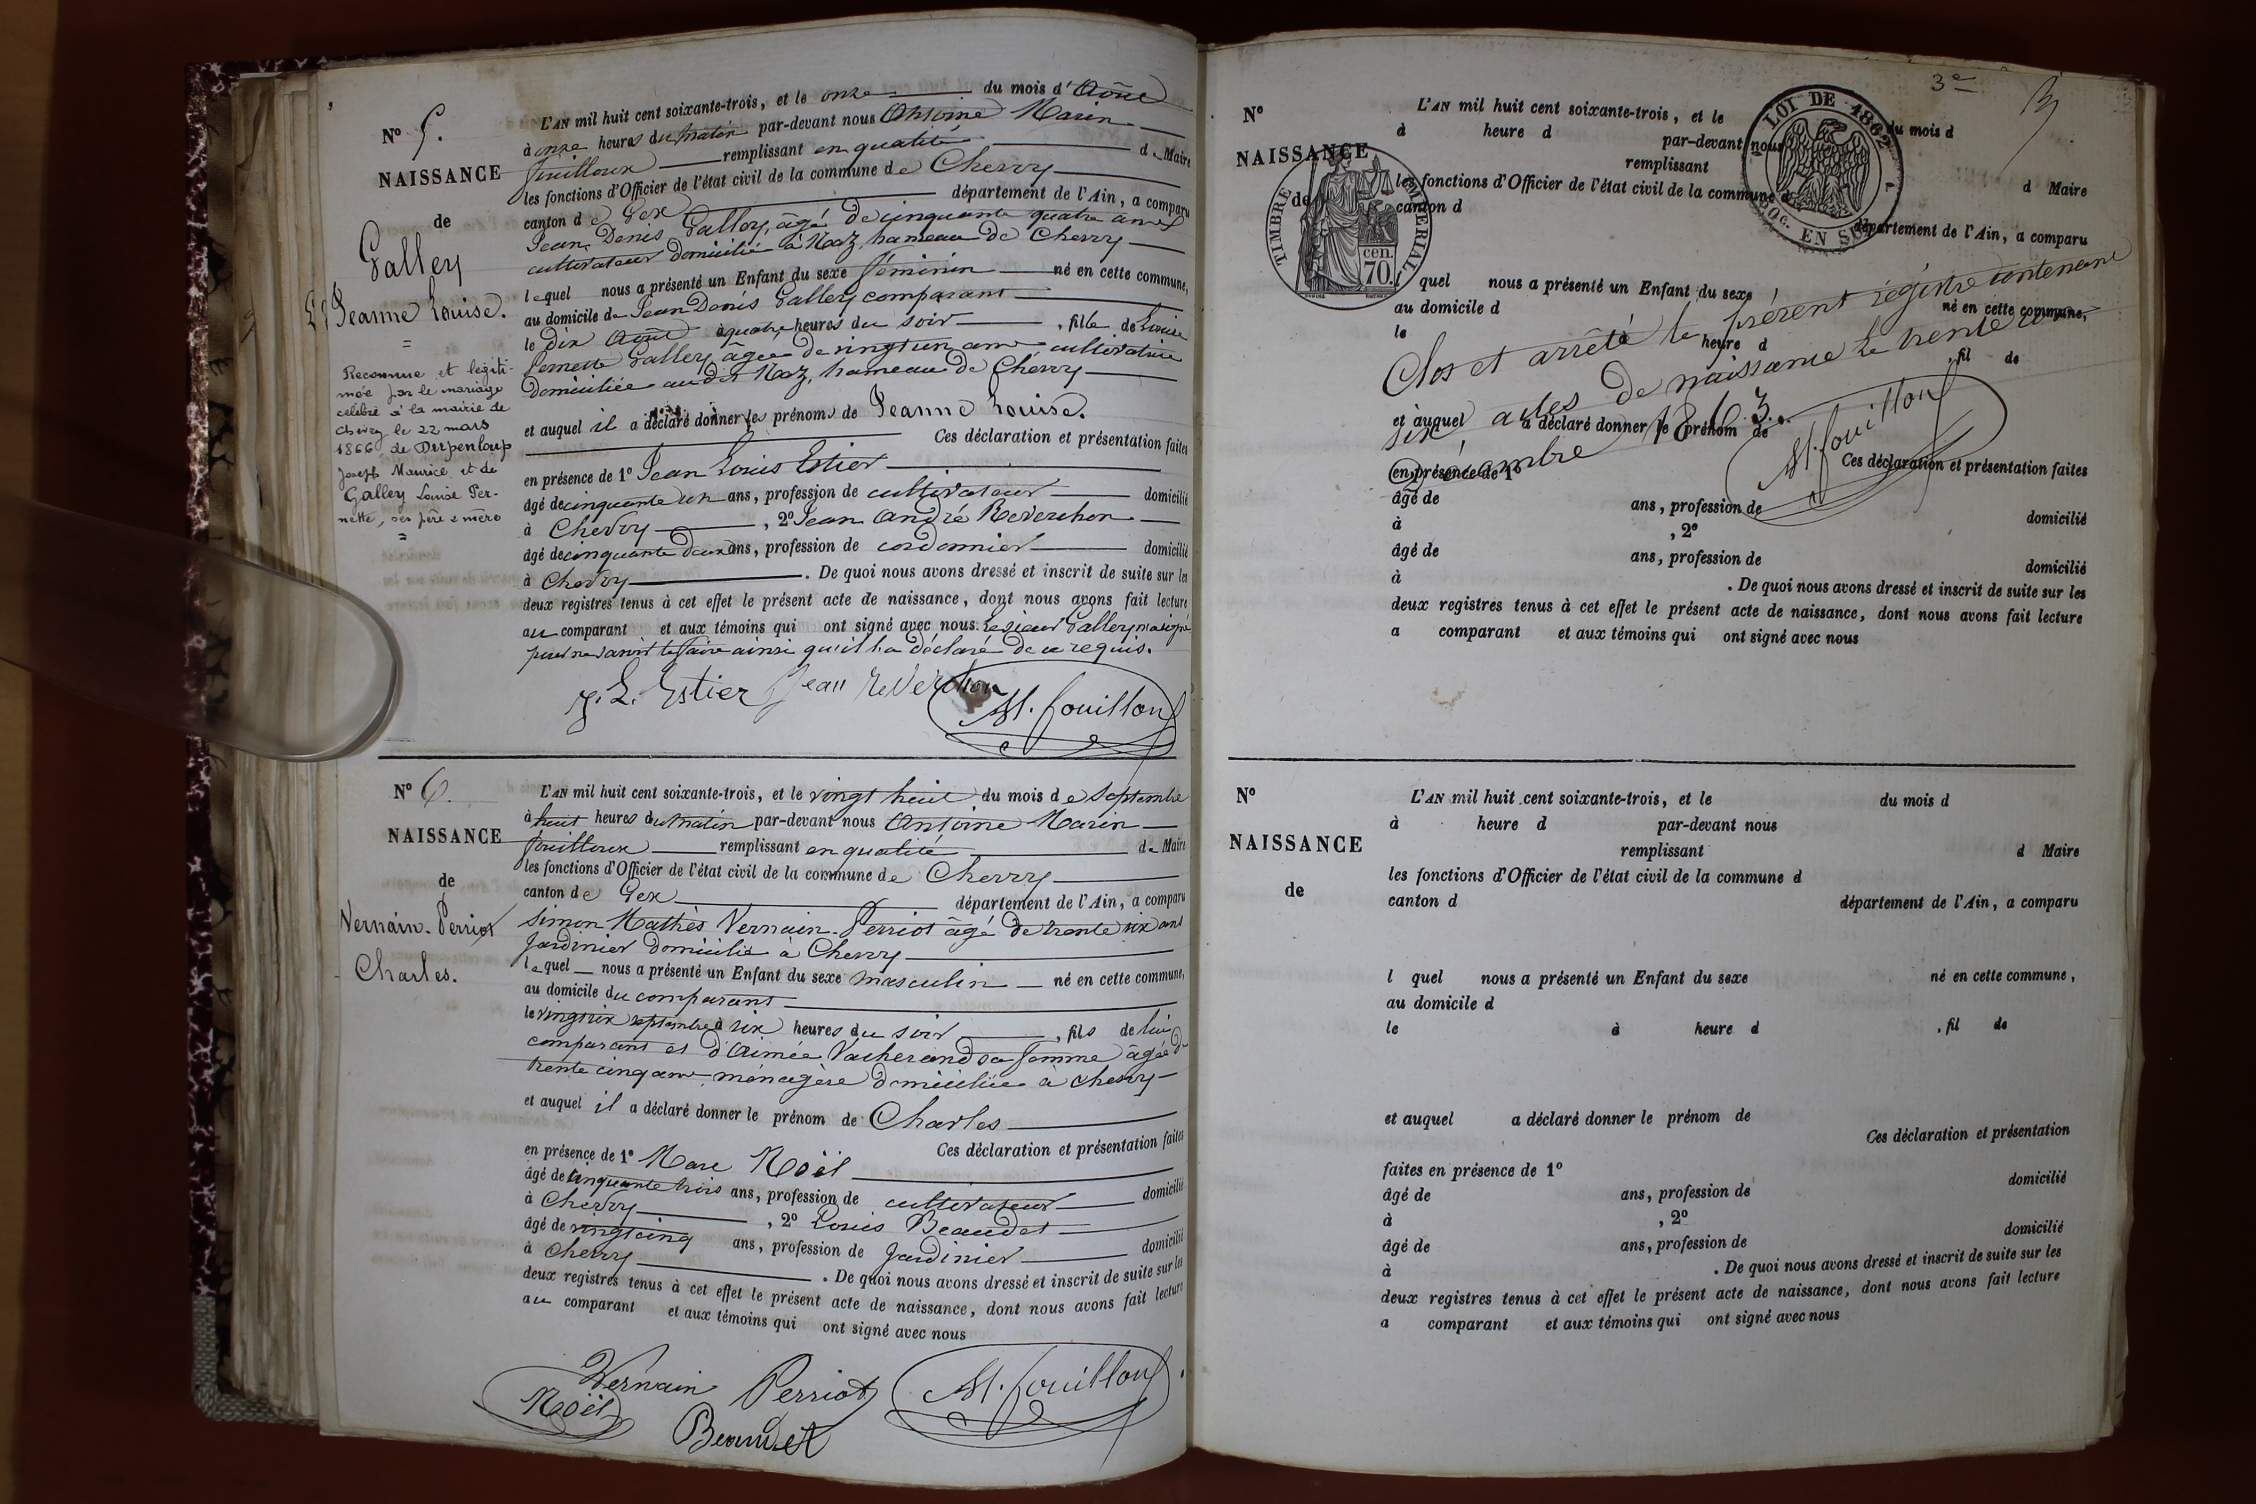 N° 5.
NAISSANCE
de
Galley
Jeanne Louise.
Reconnue et légiti-
mée par le mariage
célébré à la mairie de
Chevry le 22 mars
1866 de Dirpenloup
Joseph Maurice et de
Galley Louise Per-
nette, ses père & mère
L'AN mil huit cent soixante-trois, et le onze du mois d'Août
à onze heures du matin par-devant nous Antoine Marin
Fouilloux remplissant en qualité de Maire
les fonctions d'Officier de l'état civil de la commune de Chevry
canton de Gex département de l'Ain, a comparu
Jean Denis Galley, âgé de cinquante quatre ans
cultivateur domicilié à Naz, hameau de Chevry
lequel nous a présenté un Enfant du sexe féminin né en cette commune,
au domicile de Jean Denis Galley comparant
le dix Août à quatre heures du soir, fille de Louise
Pernette Galley âgée de vingt un ans cultivatrice
domiciliée au dit Naz, hameau de Chevry
et auquel il a déclaré donner les prénoms de Jeanne Louise.
Ces déclaration et présentation faites
en présence de 1° Jean Louis Estier
âgé de cinquante un ans, profession de cultivateur domicilié
à Chevry, 2° Jean André Reverchon
âgé de cinquante deux ans, profession de cordonnier domicilié
à Chevry. De quoi nous avons dressé et inscrit de suite sur les
deux registres tenus à cet effet le présent acte de naissance, dont nous avons fait lecture
au comparant et aux témoins qui ont signé avec nous. Le sieur Galley n'a signé
pour ne savoir le faire ainsi qu'il l'a déclaré de ce requis.
J. L. Estier Jean Reverchon M. fouilloux
N° 6.
NAISSANCE
de
Vernain-Perriot
Charles.
L'AN mil huit cent soixante-trois, et le vingt huit du mois de Septembre
à huit heures du matin par-devant nous Antoine Marin
Fouilloux remplissant en qualité de Maire
les fonctions d'Officier de l'état civil de la commune de Chevry
canton de Gex département de l'Ain, a comparu
Simon Mathès Vernain-Perriot âgé de trente six ans
Jardinier domicilié à Chevry
lequel nous a présenté un Enfant du sexe masculin né en cette commune,
au domicile du comparant
le vingt six septembre à six heures du soir, fils de lui
comparant et d'Aimée Vacherand sa femme âgée de
trente cinq ans ménagère domiciliée à Chevry
et auquel il a déclaré donner le prénom de Charles
Ces déclaration et présentation faites
en présence de 1° Marc Noël
âgé de cinquante trois ans, profession de cultivateur domicilié
à Chevry, 2° Louis Beaudet
âgé de vingt cinq ans, profession de Jardinier domicilié
à Chevry. De quoi nous avons dressé et inscrit de suite sur les
deux registres tenus à cet effet le présent acte de naissance, dont nous avons fait lecture
au comparant et aux témoins qui ont signé avec nous
Vernain Perriot M. fouilloux
Noël
Beaudet
3e
3
N°
NAISSANCE
de
TIMBRE IMPERIAL
70 cen.
LOI DE 1862
EN SUS
L'AN mil huit cent soixante-trois, et le du mois d
à heure d par-devant nous
remplissant d Maire
les fonctions d'Officier de l'état civil de la commune d
canton d département de l'Ain, a comparu
l quel nous a présenté un Enfant du sexe né en cette commune,
au domicile d
le à heure d, fil de
Clos et arrêté le présent registre contenant
six actes de naissance le trente un
Décembre 1863.
M. fouilloux
et auquel a déclaré donner le prénom de
Ces déclaration et présentation faites
en présence de 1°
âgé de ans, profession de domicilié
à, 2°
âgé de ans, profession de domicilié
à. De quoi nous avons dressé et inscrit de suite sur les
deux registres tenus à cet effet le présent acte de naissance, dont nous avons fait lecture
a comparant et aux témoins qui ont signé avec nous
N°
NAISSANCE
de
L'AN mil huit cent soixante-trois, et le du mois d
à heure d par-devant nous
remplissant d Maire
les fonctions d'Officier de l'état civil de la commune d
canton d département de l'Ain, a comparu
l quel nous a présenté un Enfant du sexe né en cette commune,
au domicile d
le à heure d, fil de
et auquel a déclaré donner le prénom de
Ces déclaration et présentation
faites en présence de 1°
âgé de ans, profession de domicilié
à, 2°
âgé de ans, profession de domicilié
à. De quoi nous avons dressé et inscrit de suite sur les
deux registres tenus à cet effet le présent acte de naissance, dont nous avons fait lecture
a comparant et aux témoins qui ont signé avec nous